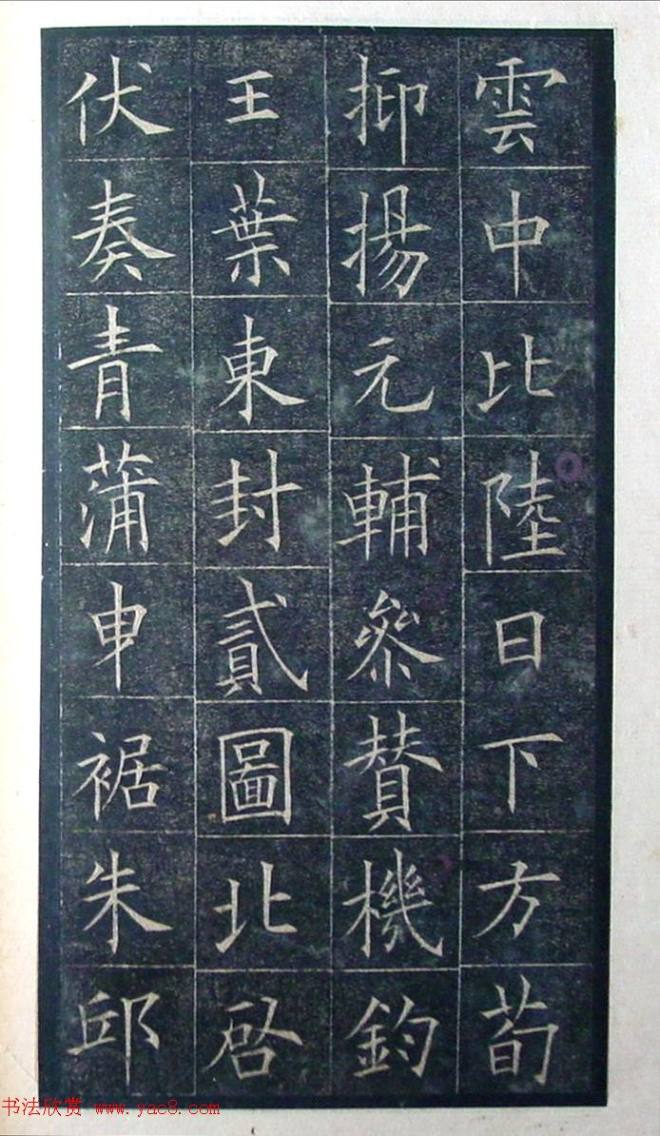 雲中比陸日下方荀
抑揚元輔叅賛機鈞
王葉東封貳圖北啓
伏奏青蒲申裾朱邸
书法欣赏 www.yac8.com